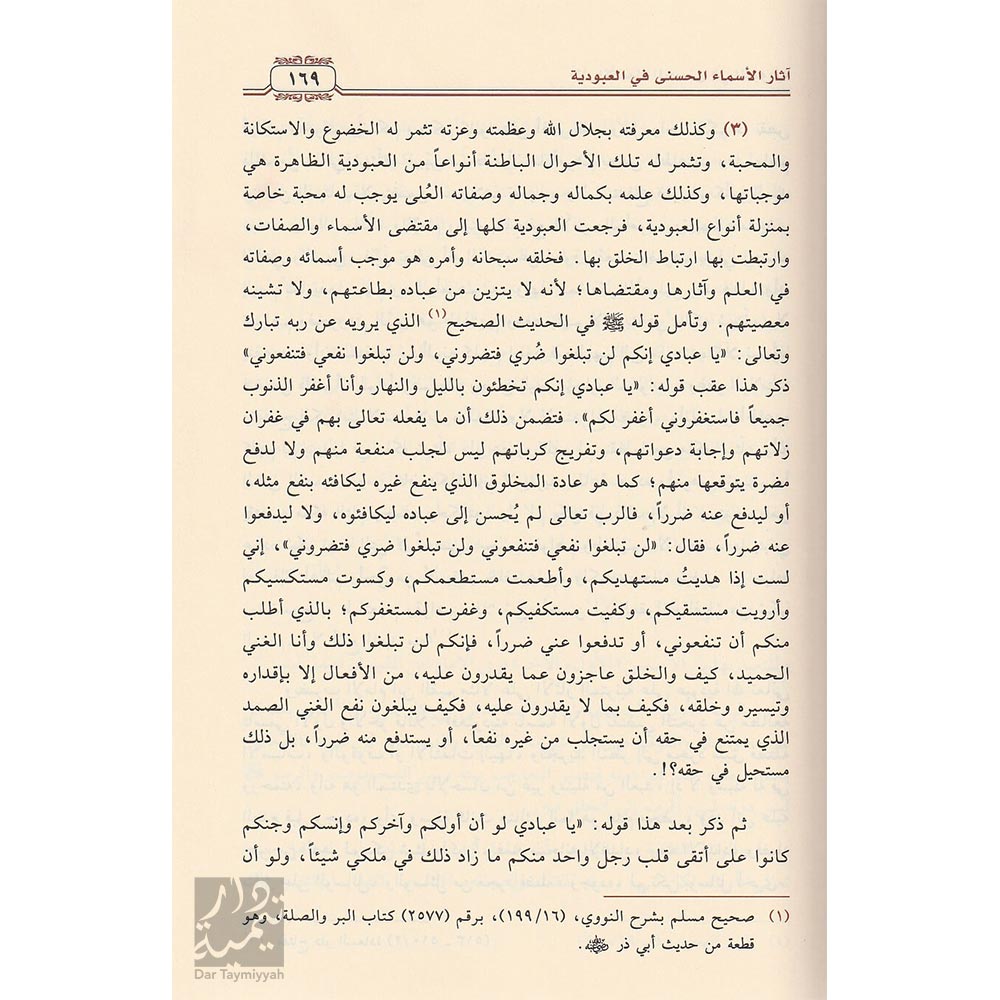 آثار الأسماء الحسنى في العبودية
١٦٩
(٣) وكذلك معرفته بجلال الله وعظمته وعزته تثمر له الخضوع والاستكانة
والمحبة، وتثمر له تلك الأحوال الباطنة أنواعاً من العبودية الظاهرة هي
موجباتها، وكذلك علمه بكماله وجماله وصفاته العُلى يوجب له محبة خاصة
بمنزلة أنواع العبودية، فرجعت العبودية كلها إلى مقتضى الأسماء والصفات،
وارتبطت بها ارتباط الخلق بها. فخلقه سبحانه وأمره هو موجب أسمائه وصفاته
في العلم وآثارها ومقتضاها؛ لأنه لا يتزين من عباده بطاعتهم، ولا تشينه
معصيتهم. وتأمل قوله ﷺ في الحديث الصحيح(١) الذي يرويه عن ربه تبارك
وتعالى: «يا عبادي إنكم لن تبلغوا ضُري فتضروني، ولن تبلغوا نفعي فتنفعوني»
ذكر هذا عقب قوله: «يا عبادي إنكم تخطئون بالليل والنهار وأنا أغفر الذنوب
جميعاً فاستغفروني أغفر لكم». فتضمن ذلك أن ما يفعله تعالى بهم في غفران
زلاتهم وإجابة دعواتهم، وتفريج كرباتهم ليس لجلب منفعة منهم ولا لدفع
مضرة يتوقعها منهم؛ كما هو عادة المخلوق الذي ينفع غيره ليكافئه بنفع مثله،
أو ليدفع عنه ضرراً، فالرب تعالى لم يُحسن إلى عباده ليكافئوه، ولا ليدفعوا
عنه ضرراً، فقال: «لن تبلغوا نفعي فتنفعوني ولن تبلغوا ضري فتضروني»، إني
لست إذا هديتُ مستهديكم، وأطعمت مستطعمكم، وكسوت مستكسيكم
وأرويت مستسقيكم، وكفيت مستكفيكم، وغفرت لمستغفركم؛ بالذي أطلب
منكم أن تنفعوني، أو تدفعوا عني ضرراً، فإنكم لن تبلغوا ذلك وأنا الغني
الحميد، كيف والخلق عاجزون عما يقدرون عليه، من الأفعال إلا بإقداره
وتيسيره وخلقه، فكيف بما لا يقدرون عليه، فكيف يبلغون نفع الغني الصمد
الذي يمتنع في حقه أن يستجلب من غيره نفعاً، أو يستدفع منه ضرراً، بل ذلك
مستحيل في حقه؟!.
ثم ذكر بعد هذا قوله: «يا عبادي لو أن أولكم وآخركم وإنسكم وجنكم
كانوا على أتقى قلب رجل واحد منكم ما زاد ذلك في ملكي شيئاً، ولو أن
(١) صحيح مسلم بشرح النووي، (١٦/ ١٩٩)، برقم (٢٥٧٧) كتاب البر والصلة، وهو
قطعة من حديث أبي ذر رضي الله عنه.
دار تيمية
Dar Taymiyyah